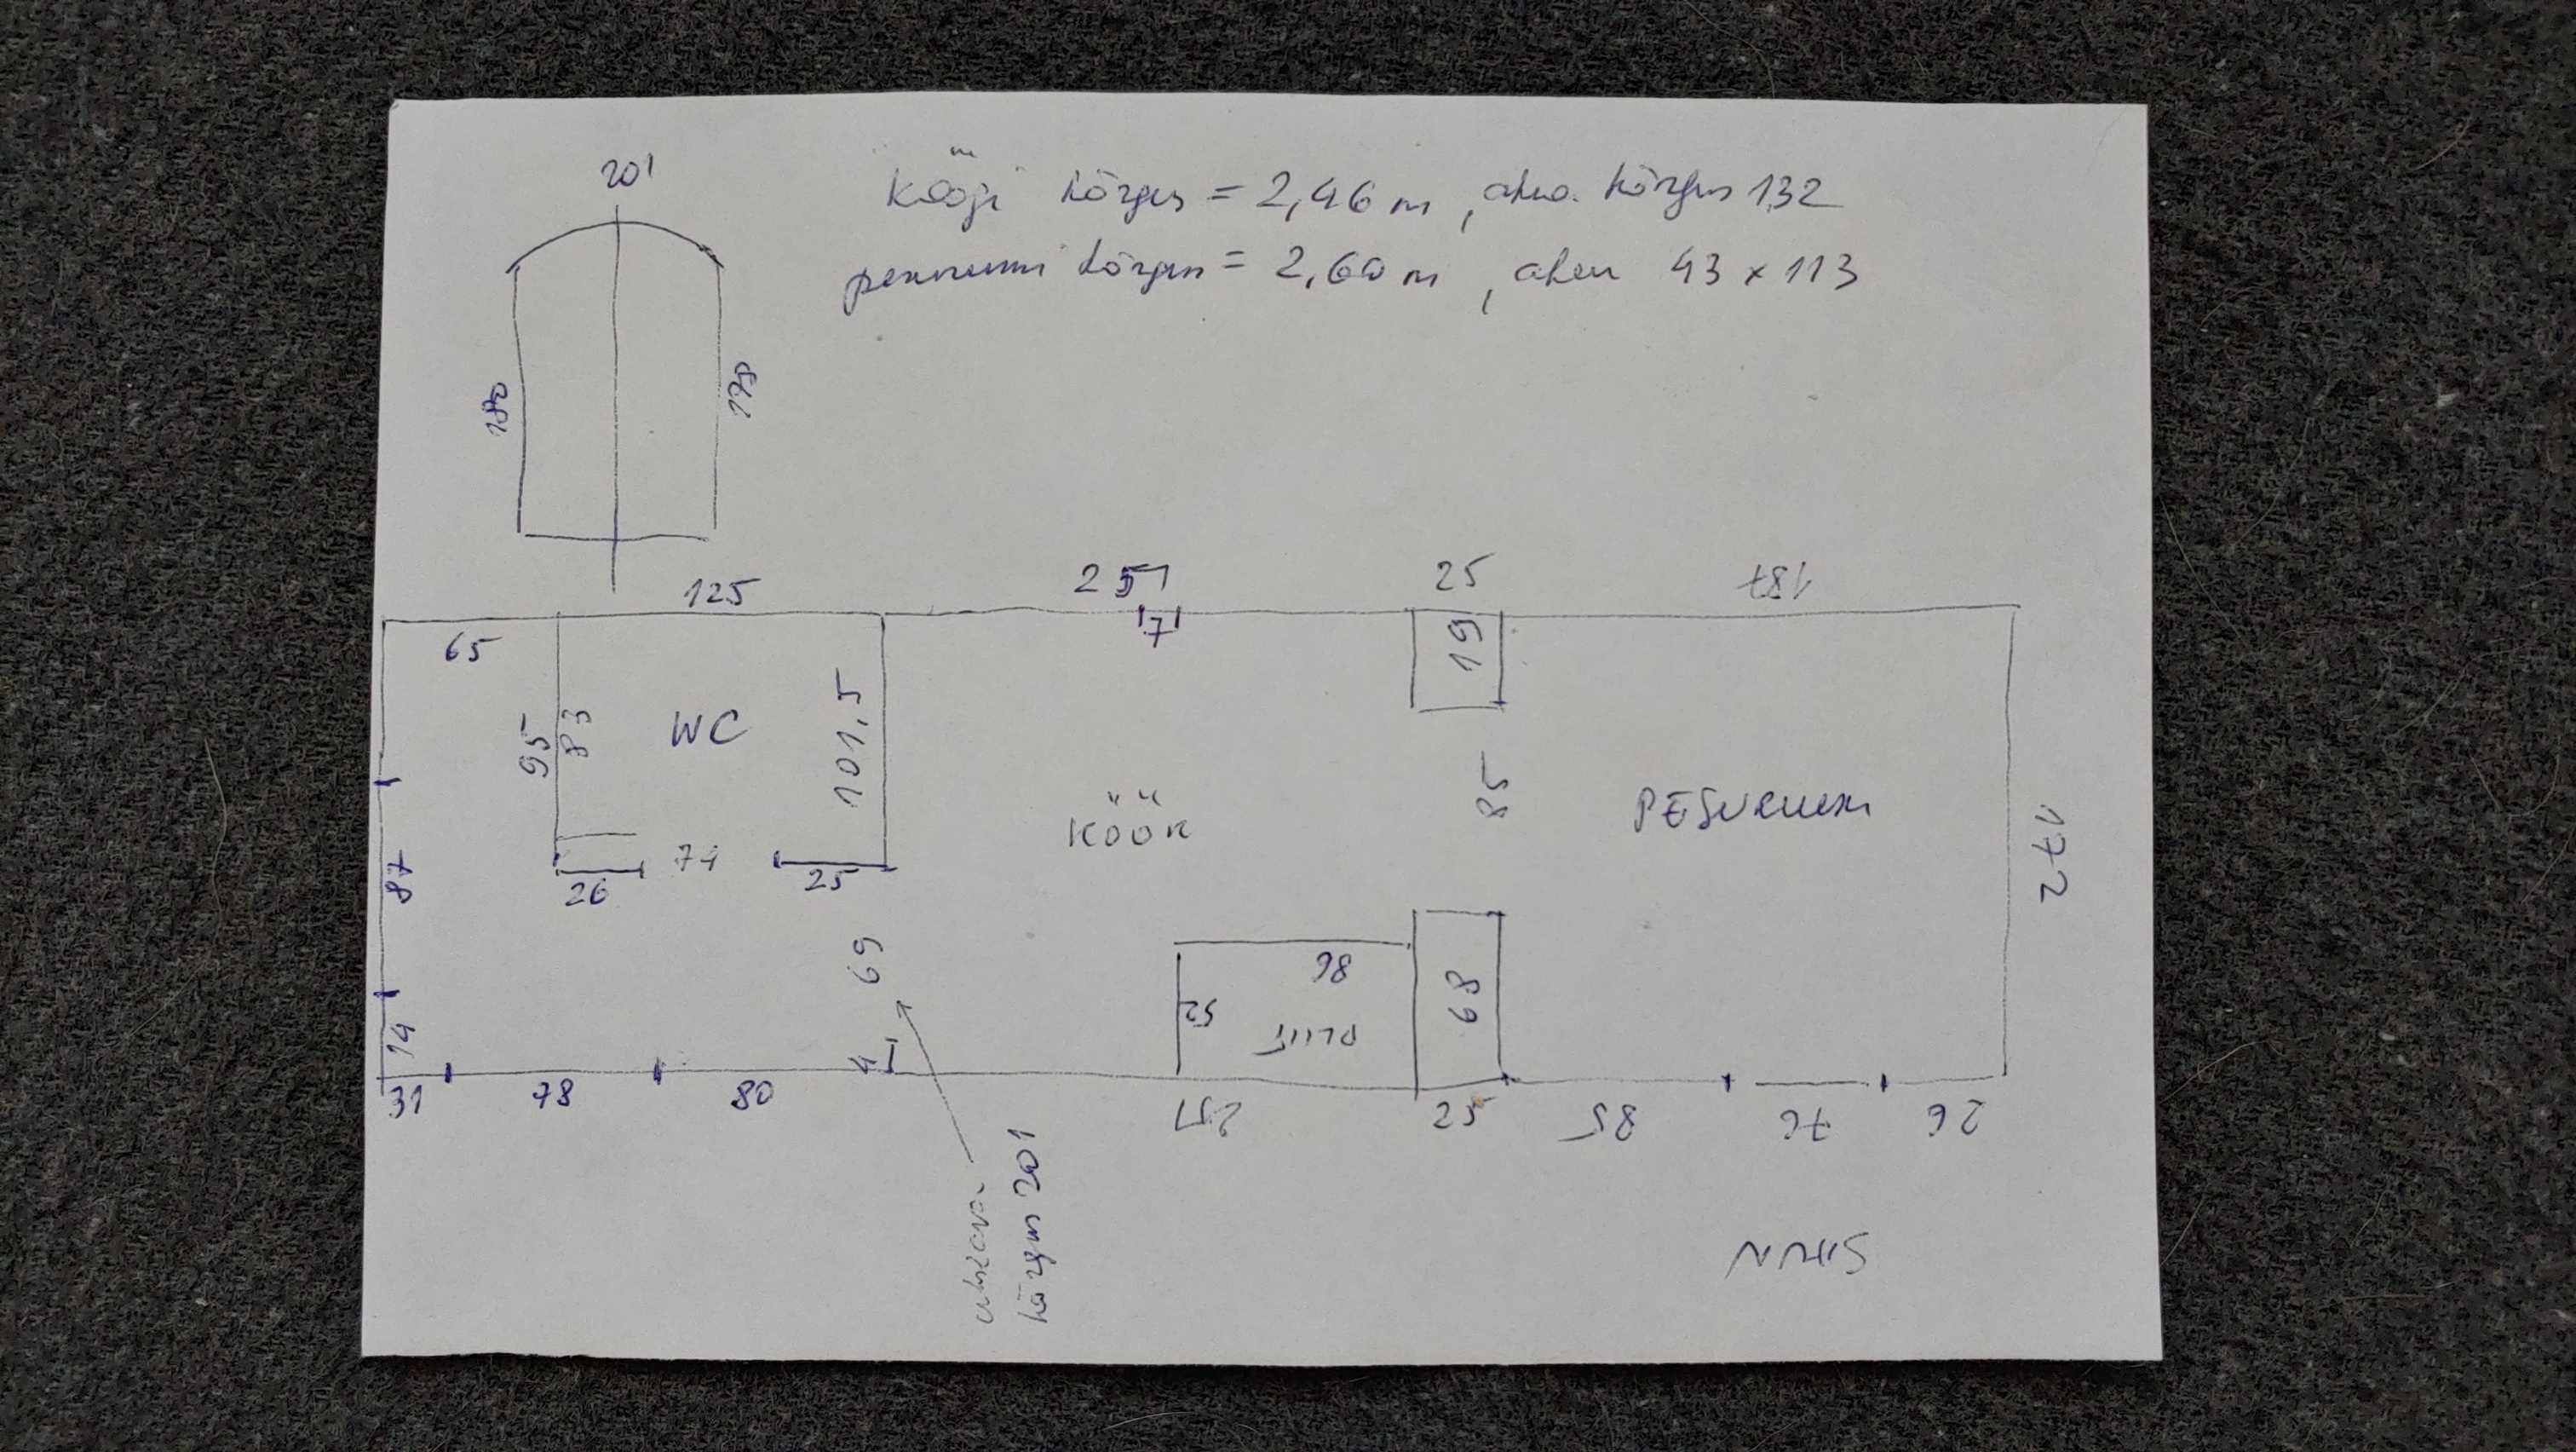 201
Köögi kõrgus = 2,46 m, akna kõrgus 132
pesuruumi kõrgus = 2,60 m, aken 43 x 113
180
125
257
7
25
187
65
19
95
83
WC
101,5
KÖÖK
85
PESURUUM
172
87
26
74
25
69
86
52
PLIIT
68
14
4
31
78
80
257
25
85
76
26
kõrgus 201
SAUN